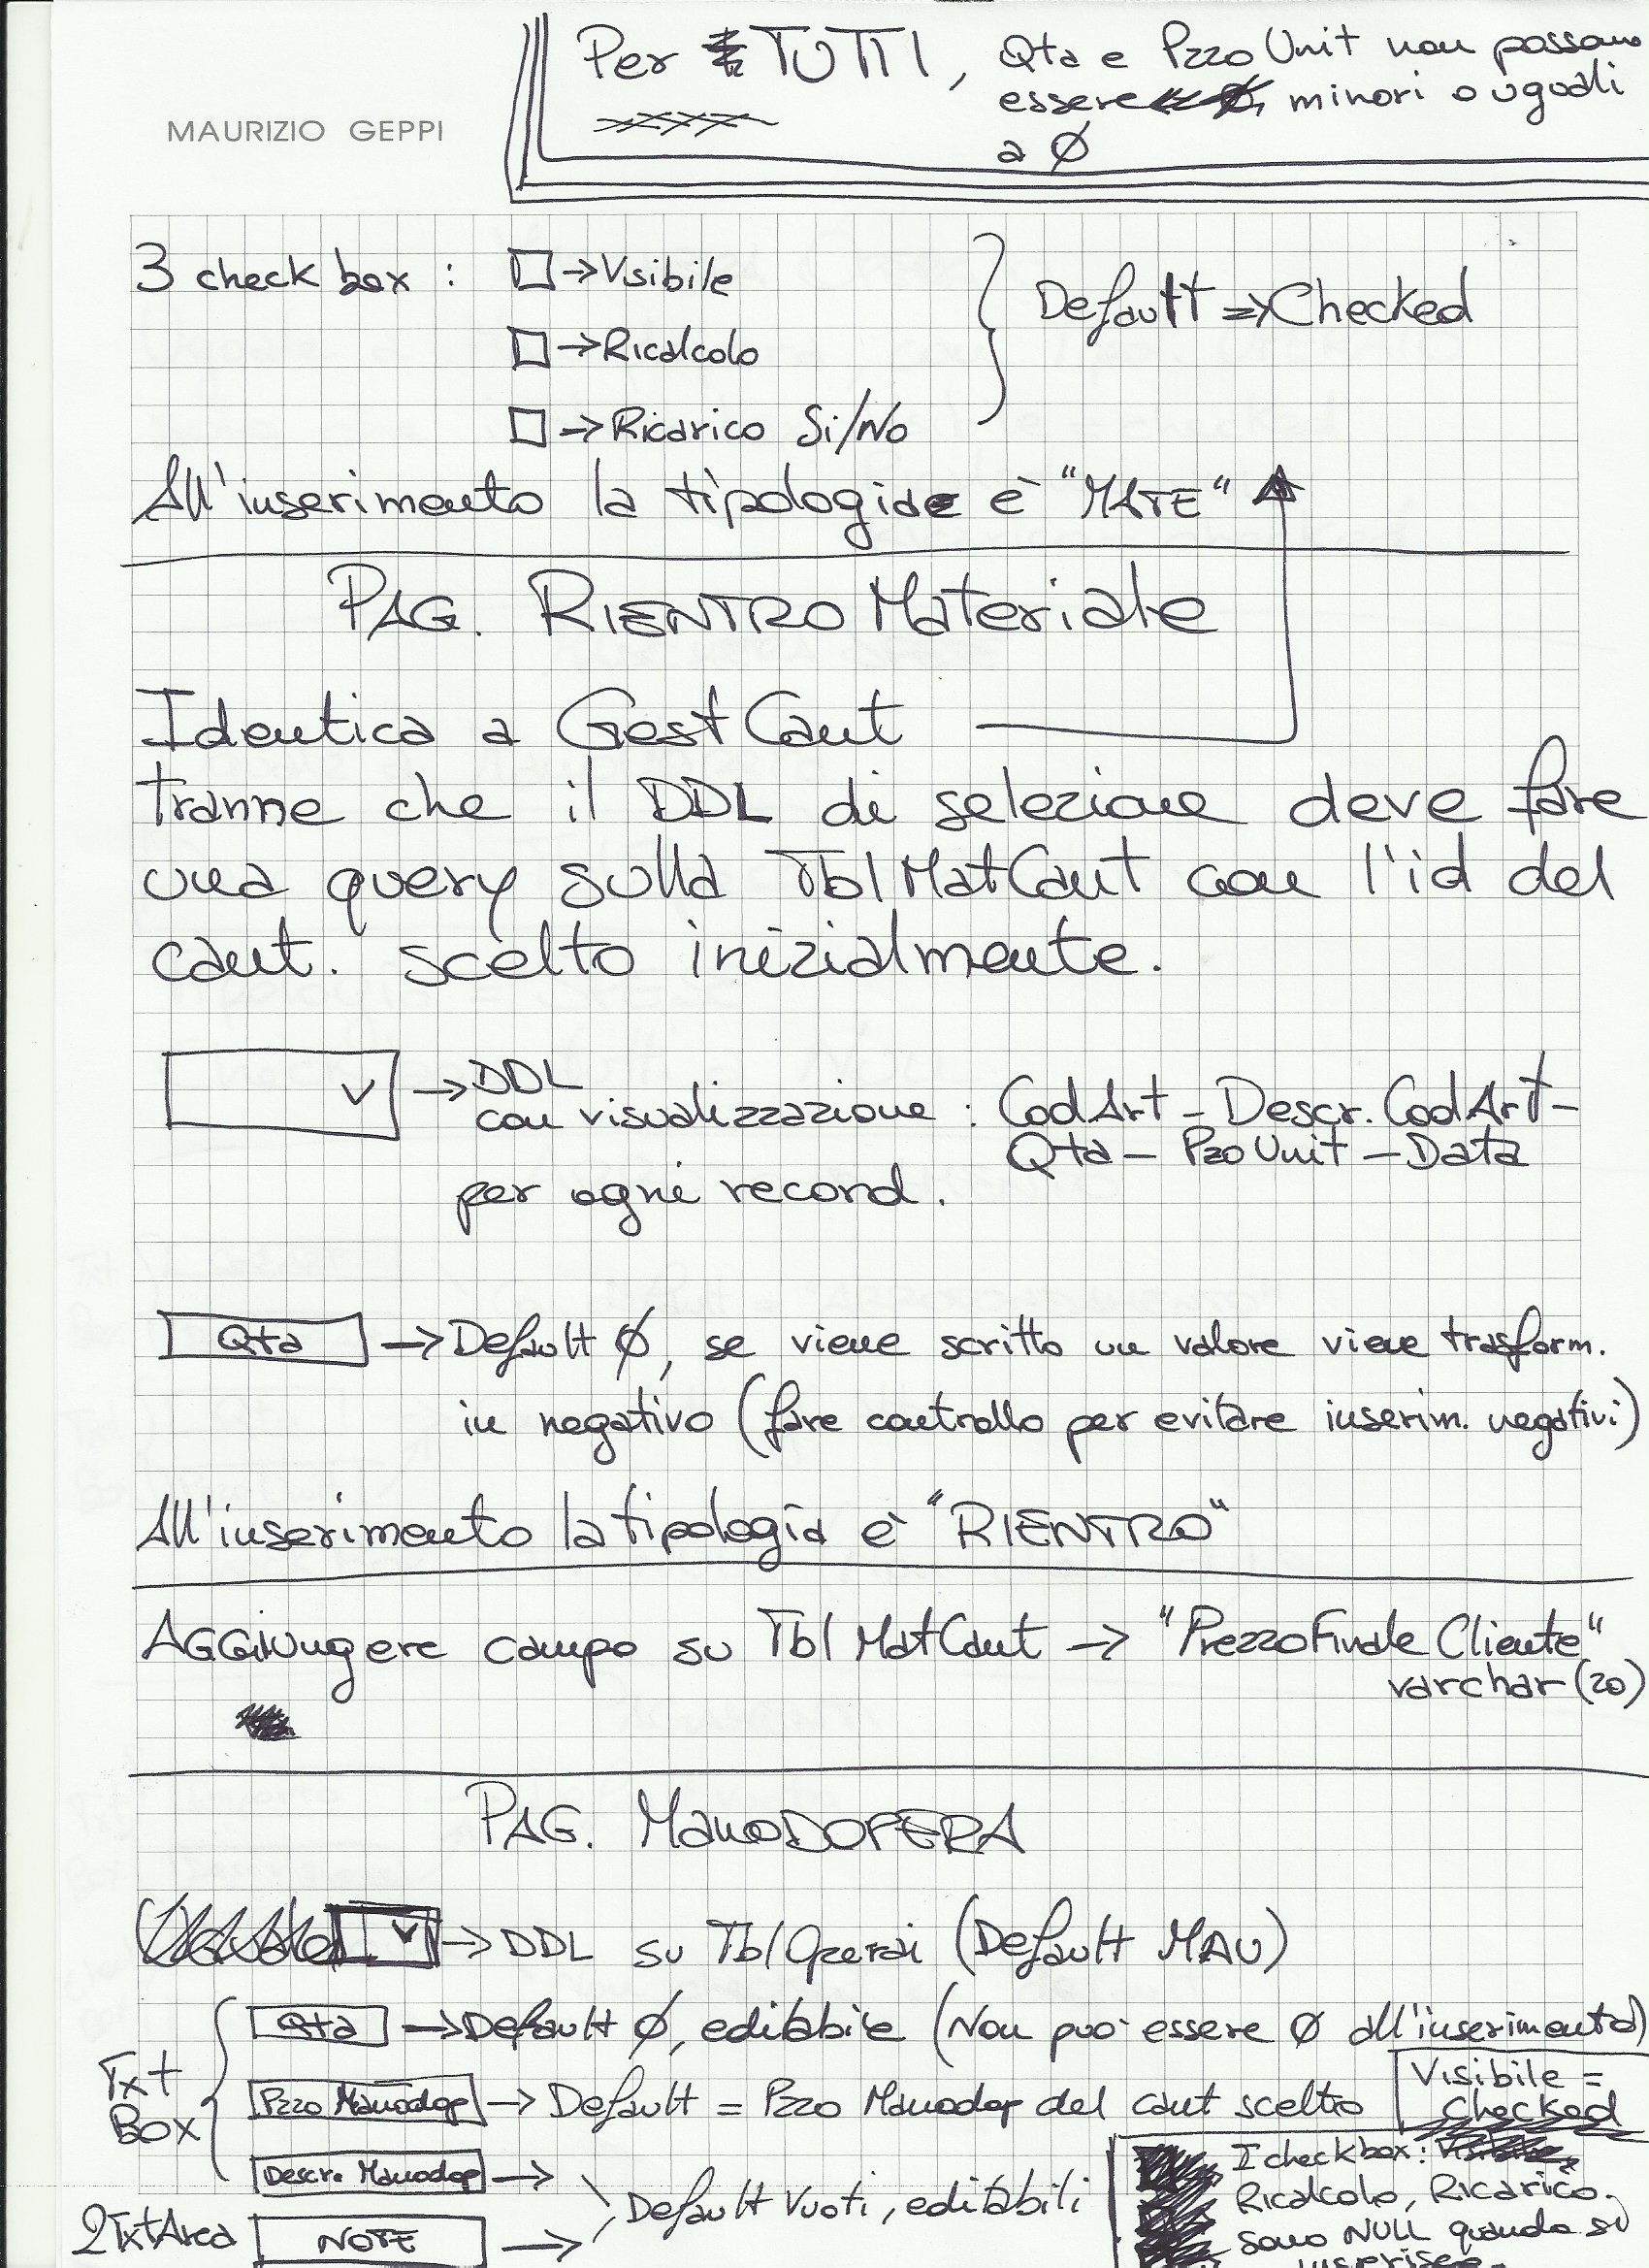 Per TUTTI, Qta e Pzzo Unit non possono
essere minori o uguali
a Ø
MAURIZIO GEPPI
3 check box : → Visibile
→ Ricalcolo
→ Ricarico Si/No
Default => Checked
All'inserimento la tipologia è "MATE"
PAG. RIENTRO Materiale
Identica a GestCant
tranne che il DDL di selezione deve fare
una query sulla TblMatCant con l'id del
cant. scelto inizialmente.
→ DDL
con visualizzazione : CodArt - Descr. CodArt -
Qta - PzoUnit - Data
per ogni record.
Qta → Default Ø, se viene scritto un valore viene trasform.
in negativo (fare controllo per evitare inserim. negativi)
All'inserimento la tipologia è "RIENTRO"
AGGiungere campo su TblMatCant → "PrezzoFinaleCliente"
varchar(20)
PAG. ManoDOPERA
→ DDL su TblOperai (Default MAU)
Txt
Box
Qta → Default Ø, editabile (Non può essere Ø all'inserimento)
Pzzo Manodop → Default = Pzzo Manodop del cant scelto
Visibile =
Checked
Descr. Manodop →
2TxtArea NOTE →
Default Vuoti, editabili
I checkbox:
Ricalcolo, Ricarico
sono NULL quando si
inserisce